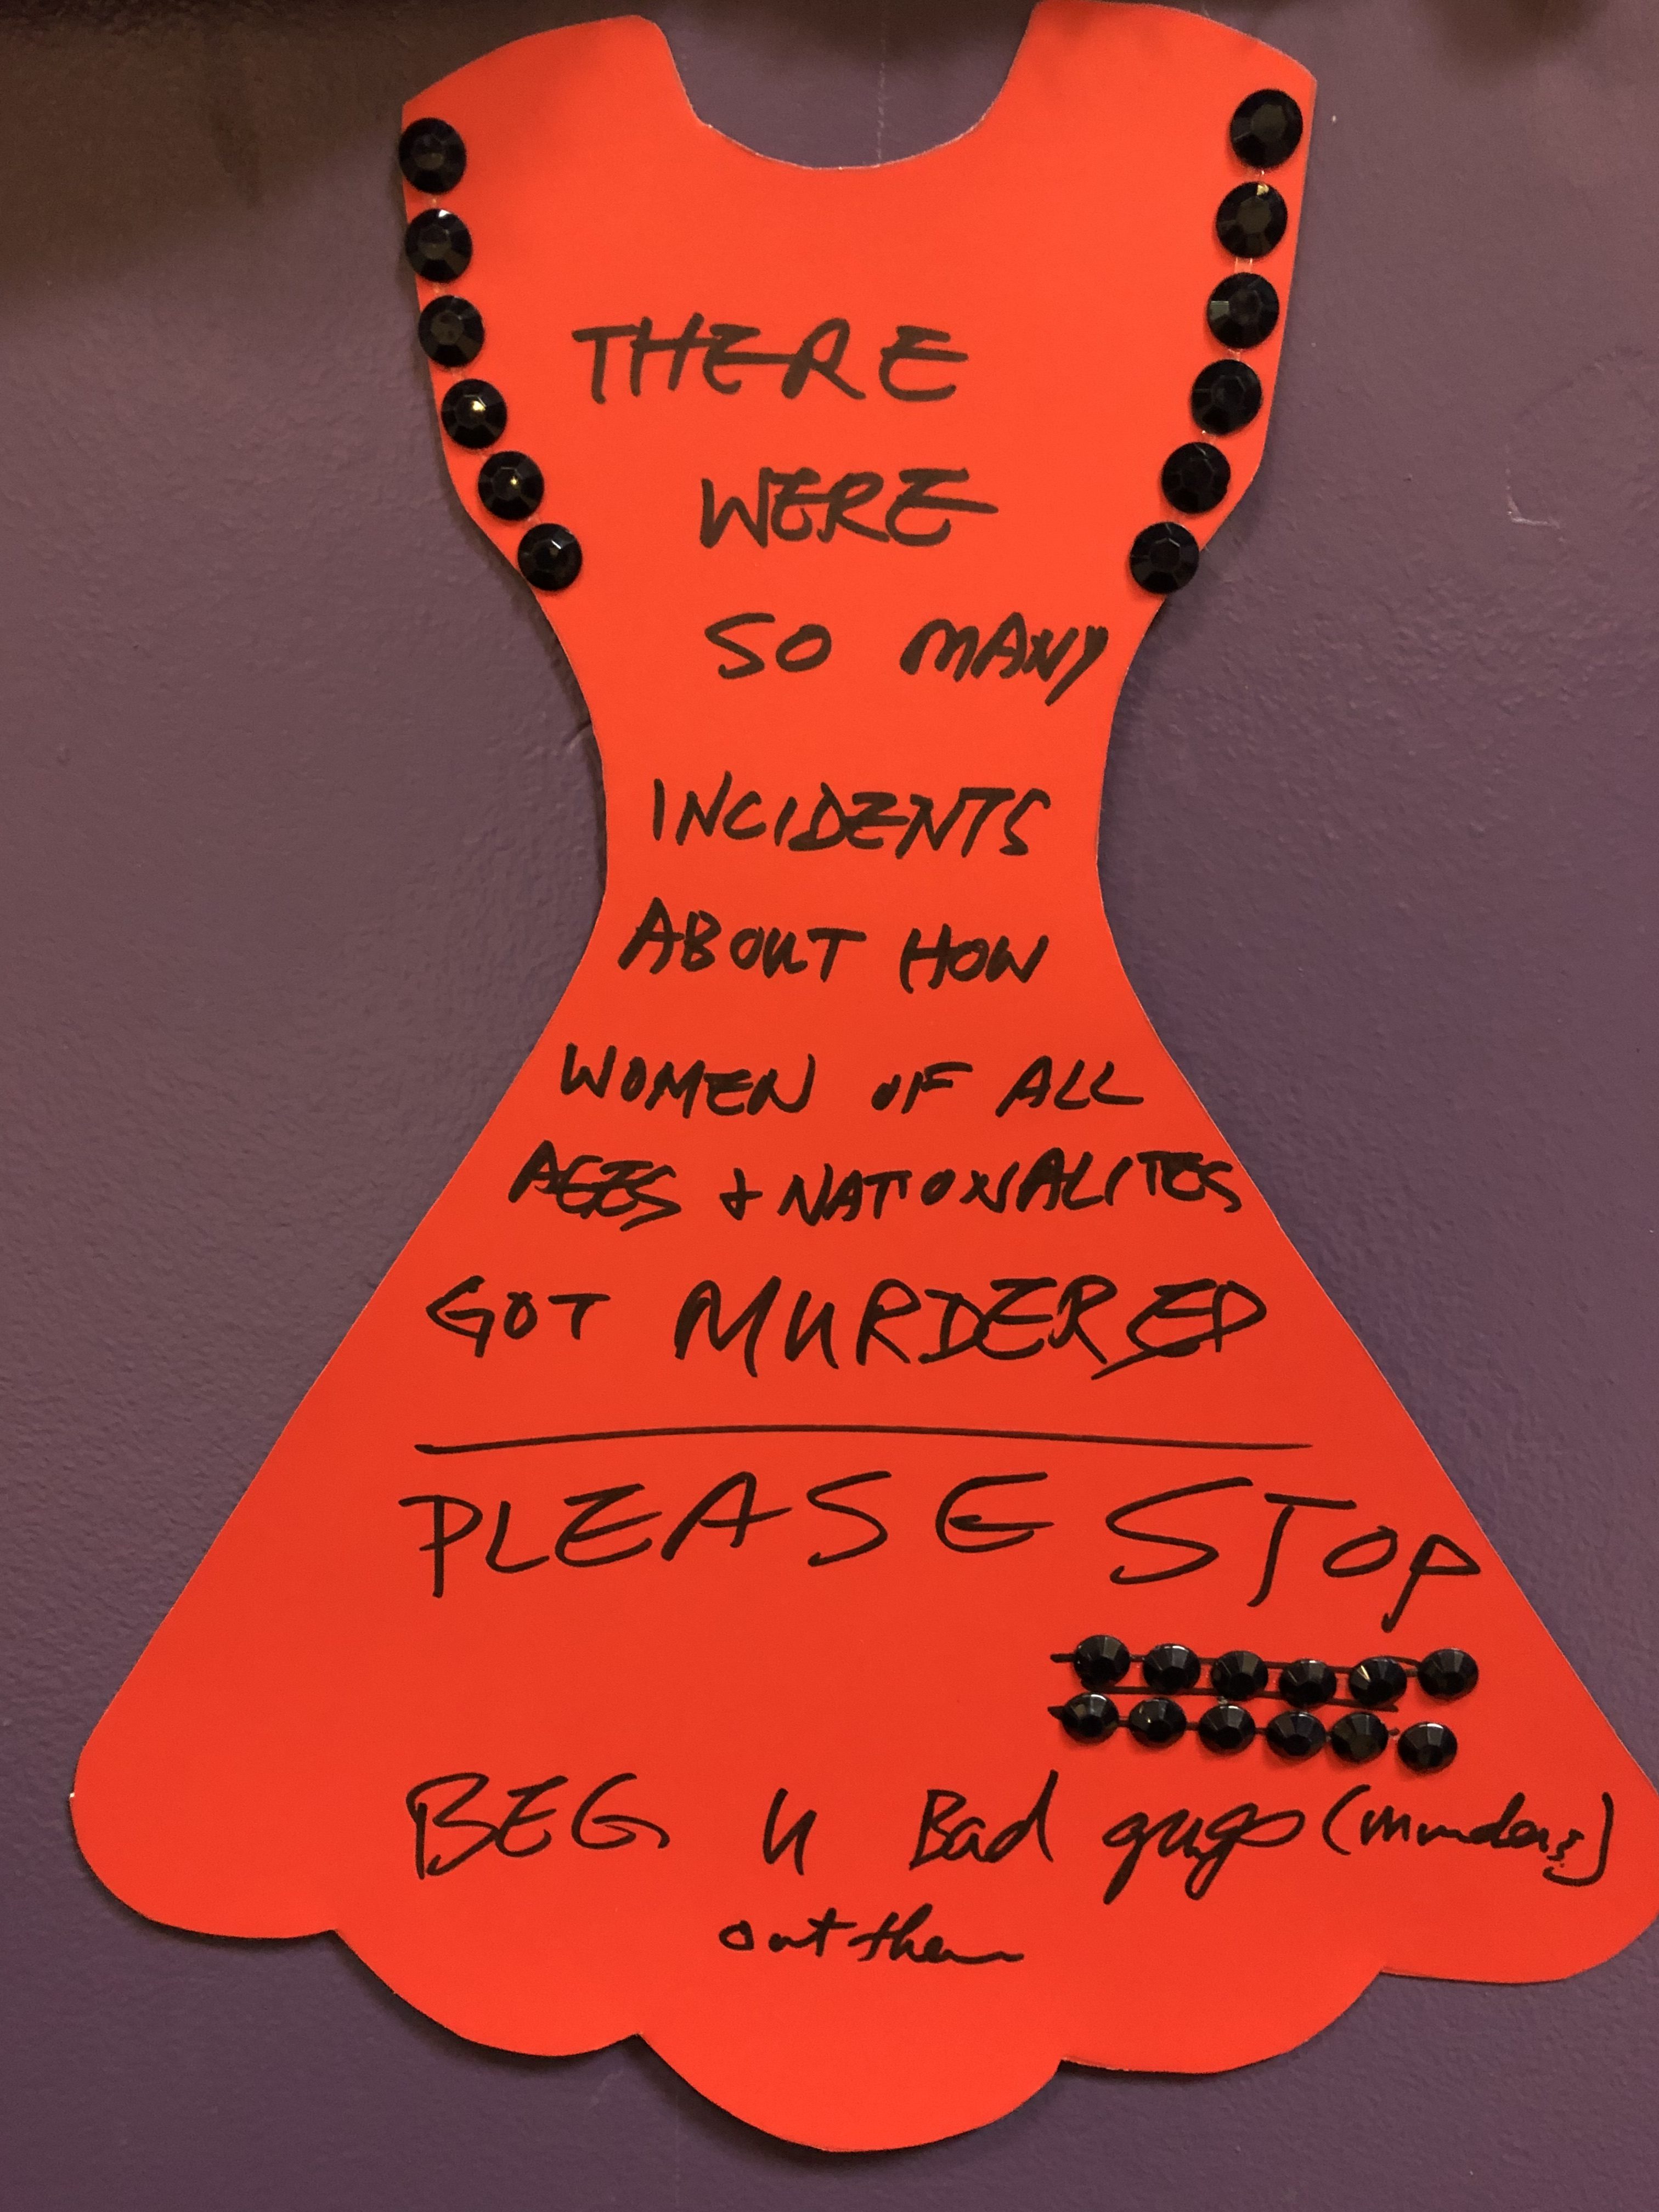 THERE
WERE
SO MANY
INCIDENTS
ABOUT HOW
WOMEN OF ALL
AGES + NATIONALITES
GOT MURDERED
PLEASE STOP
BEG U Bad guys (
out there